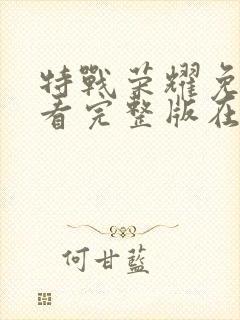 特戰荣耀免
看完整版在
何甘藍